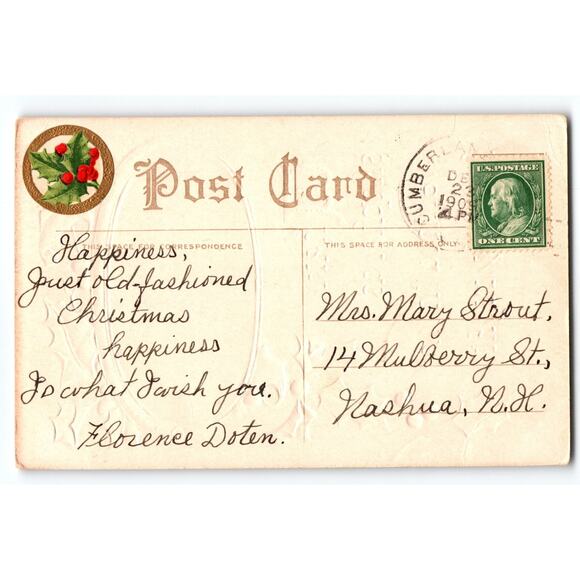 Post Card
THIS SPACE FOR CORRESPONDENCE
THIS SPACE FOR ADDRESS ONLY
CUMBERLA
DE
23
190
4 P
U.S. POSTAGE
ONE CENT
Happiness,
Just old-fashioned
Christmas
happiness
Is what I wish you.
Florence Doten.
Mrs. Mary Strout,
14 Mulberry St.,
Nashua, N.H.